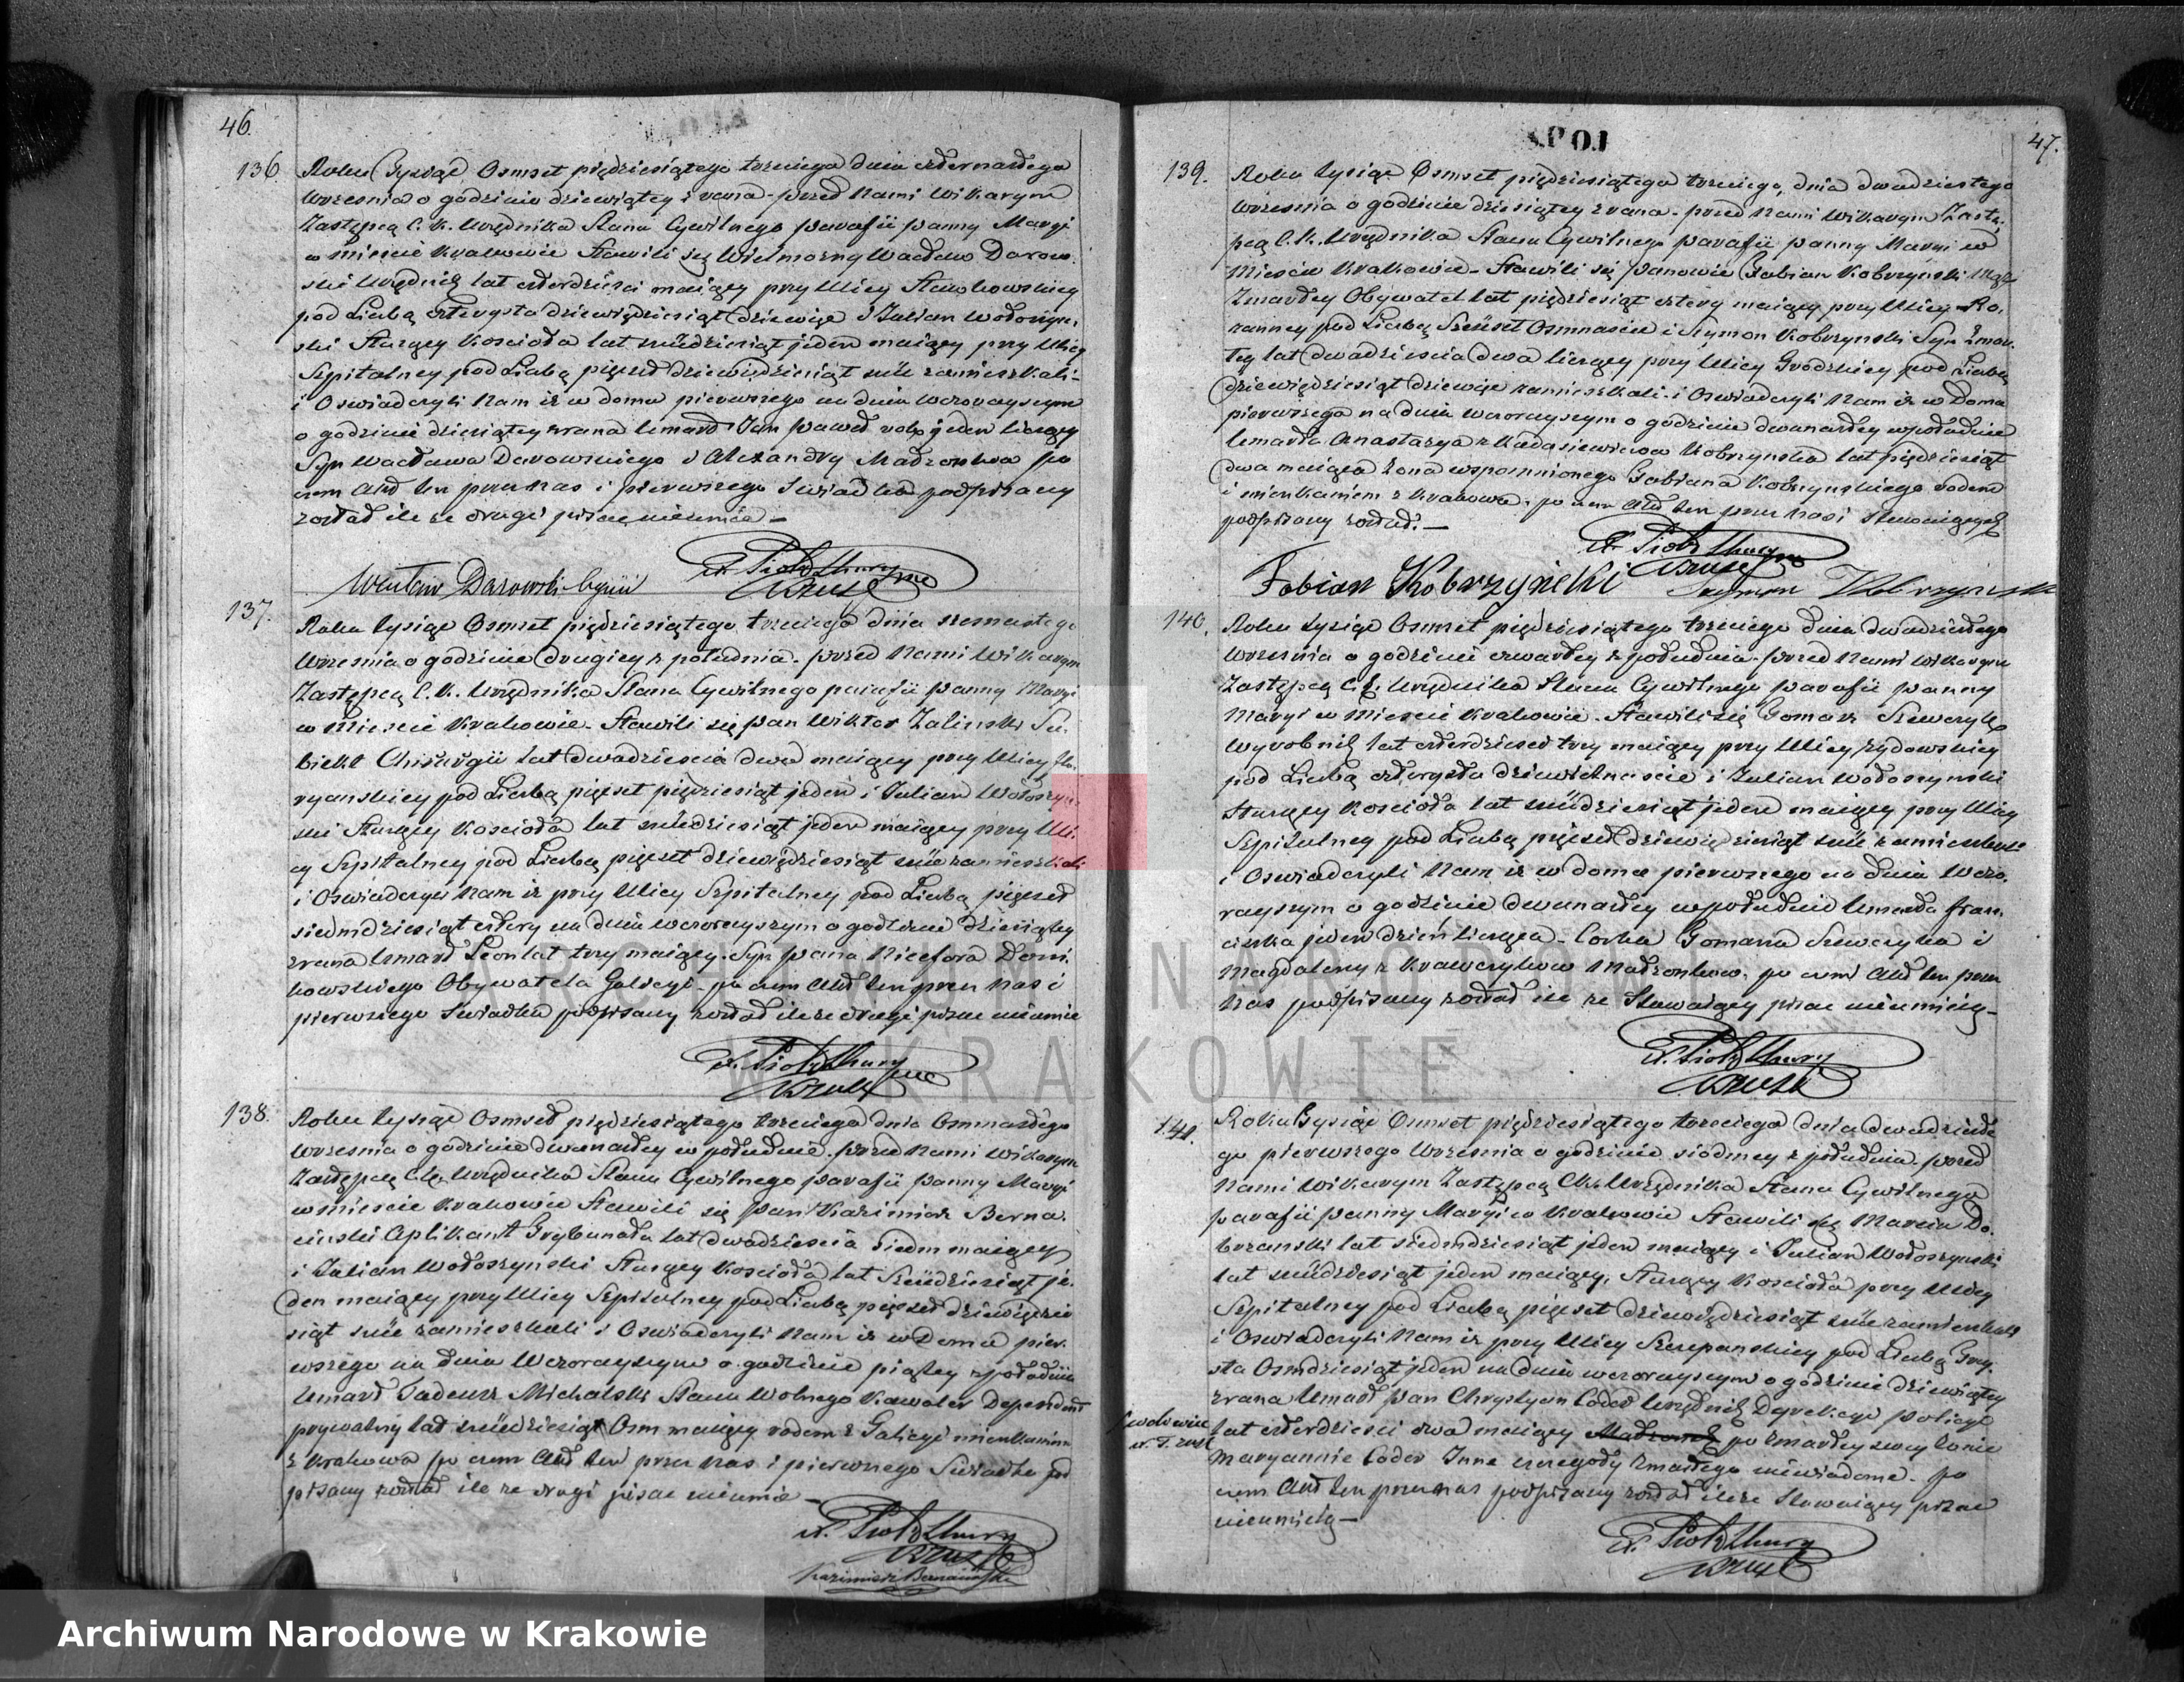 46.
136
Roku Tysiąc Osmset pięcdziesiątego trzeciego dnia czternastego
Wrzesnia o godzinie dziewiątey z rana - przed Nami Wikarym
Zastępcą C. K. Urzędnika Stanu Cywilnego parafii Panny Maryi
w Miescie Krakowie Stawili się Wielmożny Wacław Darow-
ski Urzędnik lat czterdziesci maiący przy Ulicy
pod Liczbą czterysta dziewięcdziesiąt dziewięc i Julian Wołoszyn-
ski Starzey Koscioła lat szescdziesiąt jeden maiący przy Ulicy
Szpitalney pod Liczbą pięcset dziewięcdziesiąt szesc zamieszkali -
i Oswiadczyli Nam iż w domu pierwszego na dniu wczorayszym
o godzinie dziesiątey zrana Umarł Jan Paweł rok jeden liczący
Syn Wacława Darowskiego i Alexandry Małżonków po
czem Akt ten przez nas i pierwszego Swiadka podpisany
został ile że drugi pisac nieumie -
X. Piotr Thury
Wacław Darowski
137.
Roku tysiąc Osmset pięcdziesiątego trzeciego dnia szesnastego
Wrzesnia o godzinie drugiey z południa - przed Nami Wikarym
Zastępcą C. K. Urzędnika Stanu Cywilnego parafii Panny Maryi
w Miescie Krakowie - Stawili się Pan Wiktor Zalinski Su-
biekt Chirurgii lat dwadziescia dwa maiący przy Ulicy Flo-
ryanskiey pod Liczbą pięcset pięcdziesiąt jeden i Julian Wołoszyn-
ski Starzey Koscioła lat szescdziesiąt jeden maiący przy Uli-
cy Szpitalney pod Liczbą pięcset dziewięcdziesiąt szesc zamieszkali
i Oswiadczyli Nam iż przy Ulicy Szpitalney pod Liczbą pięcset
siedmdziesiąt cztery na dniu wczorayszym o godzinie dziesiątey
zrana Umarł Leon lat trzy maiący - Syn Pana Nicefora Domi-
kowskiego Obywatela Galicyi - po czem Akt ten przez nas i
pierwszego Swiadka podpisany został ile że drugi pisac nieumie
X. Piotr Thury
138.
Roku tysiąc Osmset pięcdziesiątego trzeciego dnia Osmnastego
Wrzesnia o godzinie dwunastey w południe - przed Nami Wikarym
Zastępcą C. K. Urzędnika Stanu Cywilnego parafii Panny Maryi
w Miescie Krakowie Stawili się Pan Kazimierz Berna-
cinski Aplikant Trybunału lat dwadziescia siedm maiący
i Julian Wołoszynski Starzey Koscioła lat Szescdziesiąt je-
den maiący przy Ulicy Szpitalney pod Liczbą pięcset dziewięcdzie-
siąt szesc zamieszkali i Oswiadczyli Nam iż w Domu pier-
wszego na dniu Wczorayszym o godzinie piątey z południa
Umarł Tadeusz Michalski Stanu Wolnego Kawaler Dependent
prywatny lat szescdziesiąt Osm maiący rodem z Galicyi mieszkaniem
z Krakowa po czem Akt ten przez nas i pierwszego Swiadka pod
pisany został ile że drugi pisac nieumie -
X. Piotr Thury
Kazimierz Bernacinski
47.
139.
Roku tysiąc Osmset pięcdziesiątego trzeciego dnia dwudziestego
Wrzesnia o godzinie dziesiątey zrana - przed Nami Wikarym Zastę-
pcą C. K. Urzędnika Stanu Cywilnego parafii Panny Maryi w
Miescie Krakowie - Stawili się Panowie Fabian Kobrzynski Mąż
Zmarłey Obywatel lat pięcdziesiąt cztery maiący przy Ulicy Ro-
zanney pod Liczbą Szescset Osmnascie i Szymon Kobrzynski Syn Zmar-
łey lat dwadziescia dwa liczący przy Ulicy Grodzkiey pod Liczbą
dziewięcdziesiąt dziewięc zamieszkali - i Oswiadczyli Nam iż w Domu
pierwszego na dniu wczorayszym o godzinie dwunastey w południe
Umarła Anastazya z Kobrzynska lat pięcdziesiąt
dwa maiąca Zona wspomnionego Fabiana Kobrzynskiego rodem
i mieszkaniem z Krakowa, po czem Akt ten przez nas i Stawaiących
podpisany został. -
X. Piotr Thury
Fabian Kobrzyński Szymon Kobrzynski
140.
Roku tysiąc Osmset pięcdziesiątego trzeciego dnia dwudziestego
Wrzesnia o godzinie czwartey z południa - przed Nami Wikarym
Zastępcą C. K. Urzędnika Stanu Cywilnego parafii Panny
Maryi w Miescie Krakowie - Stawili się Gomarz Szewczyk
Wyrobnik lat czterdziesci trzy maiący przy Ulicy Zydowskiey
pod Liczbą czterysta dziewiętnascie i Julian Wołoszynski
Starzey Koscioła lat szescdziesiąt jeden maiący przy Ulicy
Szpitalney pod Liczbą pięcset dziewięcdziesiąt szesc zamieszkali
i Oswiadczyli Nam iż w domu pierwszego na dniu Wczo-
rayszym o godzinie dwunastey w południe Umarła Fran-
ciszka jeden dzień licząca - Corka Gomarza Szewczyka i
Magdaleny z Krawczyków Małżonków, po czem Akt ten przez
Nas podpisany został ile że Stawaiący pisac nieumieią -
X. Piotr Thury
141.
Roku Tysiąc Osmset pięcdziesiątego trzeciego dnia dwudzieste
go pierwszego Wrzesnia o godzinie siodmey z południa - przed
Nami Wikarym Zastępcą C. K. Urzędnika Stanu Cywilnego
parafii Panny Maryi w Krakowie Stawili się Marcin Do-
brzanski lat siedmdziesiąt jeden maiący i Julian Wołoszynski
lat szescdziesiąt jeden maiący, Starzey Koscioła przy Ulicy
Szpitalney pod Liczbą pięcset dziewięcdziesiąt szesc zamieszkali
i Oswiadczyli Nam iż przy Ulicy Szczepanskiey pod Liczbą Trzy-
sta Osmdziesiąt jeden na dniu wczorayszym o godzinie dziewiątey
zrana Umarł Pan Chrystyan Coder Urzędnik Dyrekcyi Policyi
lat czterdziesci dwa maiący po Zmarłey swey Zonie
Maryannie Coder Inne szczegoły Zmarłego niewiadome - po
czem Akt ten przez nas podpisany został ile że Stawaiący pisac
nieumieią -
X. Piotr Thury
ARCHIWUM NARODOWE
W KRAKOWIE
Archiwum Narodowe w Krakowie